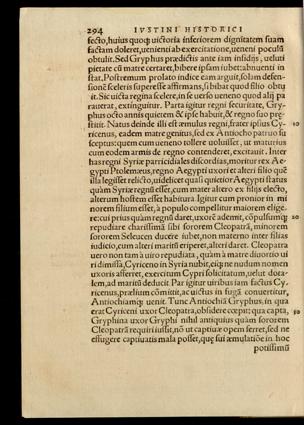 294 IVSTINI HISTORICI
fecto, huius quoq; uictoria inferiorem dignitatem suam
factam doleret, uenienti ab exercitatione, ueneni poculũ
obtulit. Sed Gryphus prædictis ante iam insidijs, ueluti
pietate cũ matre certaret, bibere ipsam iubet: abnuenti in
stat. Postremum prolato indice eam arguit, solam defen-
sionẽ sceleris superesse affirmans, si bibat quod filio obtu
lit. Sic uicta regina scelere, in se uerso ueneno quod alij pa
rauerat, extinguitur. Parta igitur regni securitate, Gry-
phus octo annis quietem & ipse habuit, & regno suo præ-
stitit. Natus deinde illi est æmulus regni, frater ipsius Cy-
ricenus, eadem matre genitus, sed ex Antiocho patruo su
sceptus: quem cum ueneno tollere uoluisset, ut maturius
cum eodem armis de regno contenderet, excitauit. Inter
has regni Syriæ parricidiales discordias, moritur rex Ae-
gypti Ptolemæus, regno Aegypti uxori et alteri filio quẽ
illa legisset relicto, uidelicet quasi quietior Aegypti status
quàm Syriæ regnũ esset, cum mater altero ex filijs electo,
alterum hostem esset habitura. Igitur cum pronior in mi
norem filium esset, à populo compellitur maiorem elige-
re: cui prius quàm regnũ daret, uxorẽ ademit, cõpulsumq;
repudiare charissimã sibi sororem Cleopatrã, minorem
sororem Seleucen ducere iubet, non materno inter filias
iudicio, cum alteri maritũ eriperet, alteri daret. Cleopatra
uero non tam à uiro repudiata, quàm à matre diuortio ui
ri dimissa, Cyriceno in Syria nubit, eiq; ne nudum nomen
uxoris afferret, exercitum Cypri solicitatum, uelut dota-
lem, ad maritũ deducit. Par igitur uiribus iam factus Cy-
ricenus, prælium cõmittit, ac uictus in fugã conuertitur,
Antiochiamq; uenit. Tunc Antiochiã Gryphus, in qua
erat Cyriceni uxor Cleopatra, obsidere cœpit: qua capta,
Gryphina uxor Gryphi nihil antiquius quàm sororem
Cleopatrã requiri iussit, nõ ut captiuæ opem ferret, sed ne
effugere captiuitatis mala posset, quę sui æmulatiõe in hoc
potissimũ